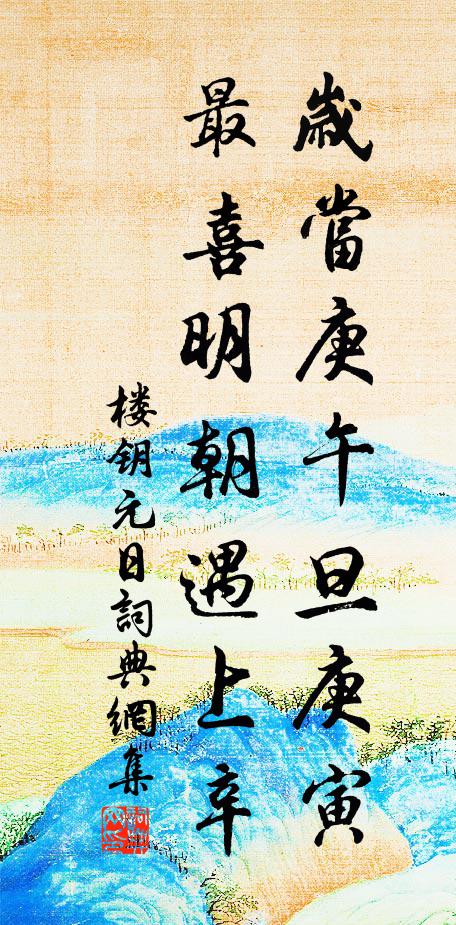 歳當庚午旦庚寅
最喜明朝遇上辛
楼钥元日詞典網集